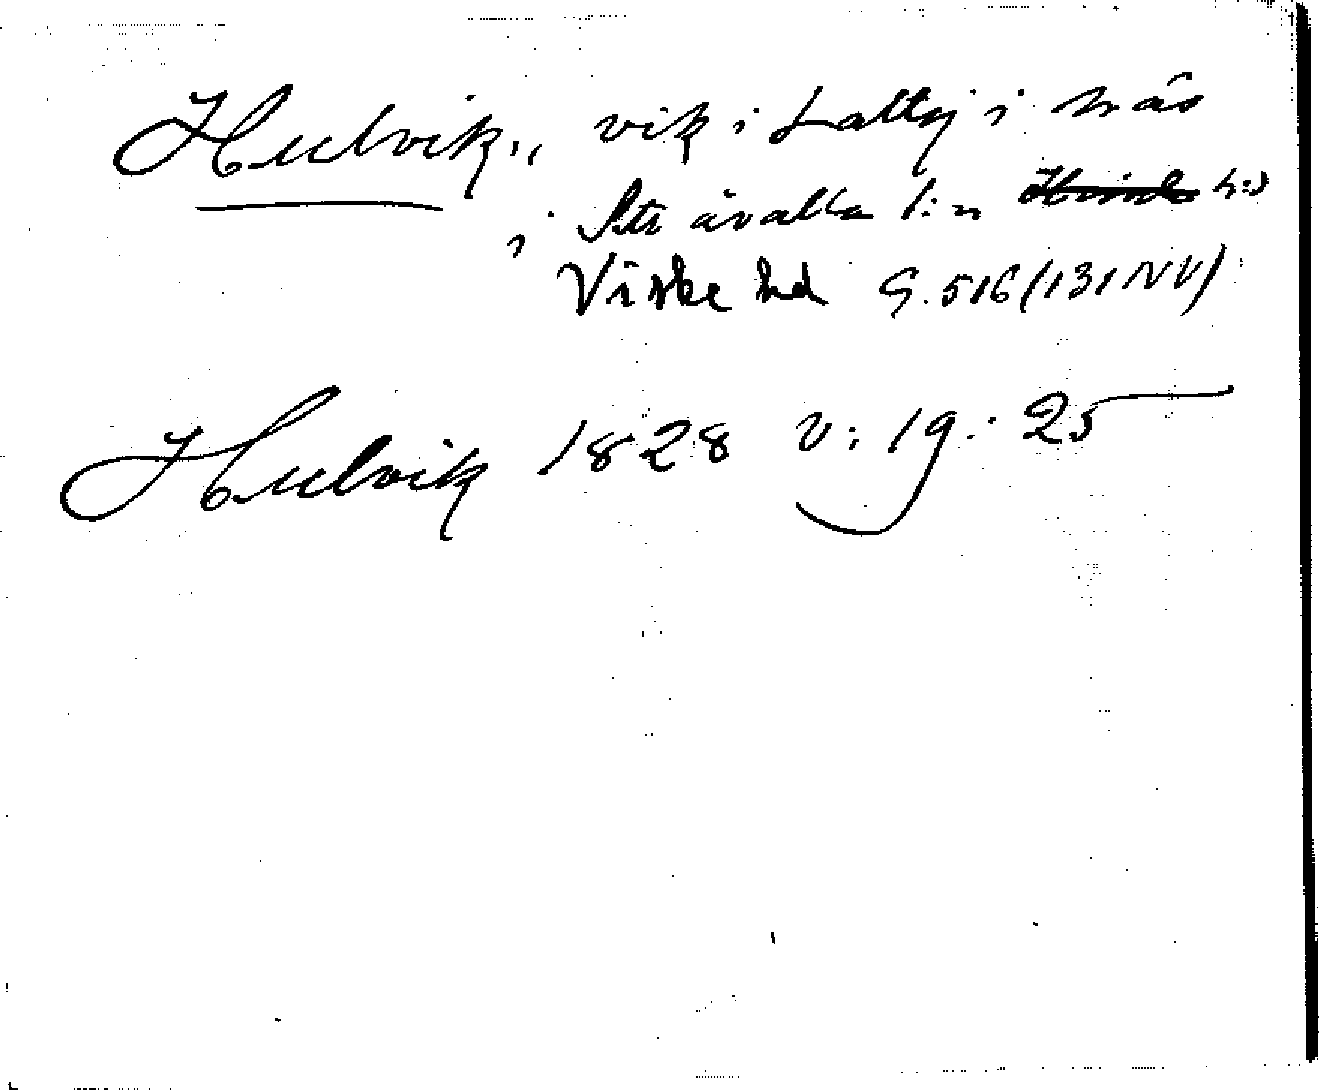 Hulvik,, vik i Lattj i Näs
i Stå ävalla l:n Kind h:d
Viske hd G. 516 (131 NV)
Hulvik 1828 V: 19: 25